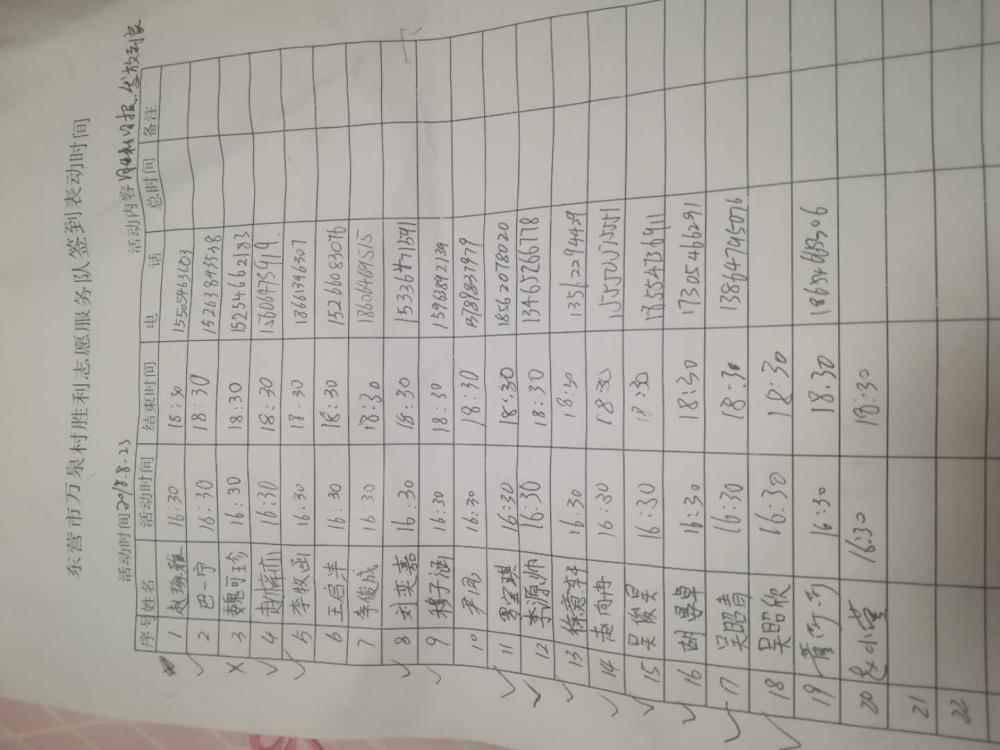 东营市万泉村胜利志愿服务队签到表动时间
活动时间2018.8.23 活动内容
序号 姓名 活动时间 结束时间 电话 总时间 备注
1 16:30 18:30 15505463603
2 巴一宁 16:30 18:30 15263849538
3 魏可珍 16:30 18:30 15254662183
4 赵梓亦 16:30 18:30 15606475919
5 李牧函 16:30 18:30 18661396307
6 王启洋 16:30 18:30 15266083076
7 李俊成 16:30 18:30 18606469515
8 刘奕嘉 16:30 18:30 15336471591
9 穆子涵 16:30 18:30 15963892139
10 16:30 18:30
11 16:30 18:30 18562078020
12 李源帅 16:30 18:30 13465266778
13 16:30 18:30 13562294429
14 赵向冉 16:30 18:30
15 吴俊昊 16:30 18:30
16 胡 16:30 18:30 17305466291
17 吴昭青 16:30 18:30 13864745076
18 吴昭欣 16:30 18:30
19 16:30 18:30
20 赵小萱 16:30 18:30
21
22